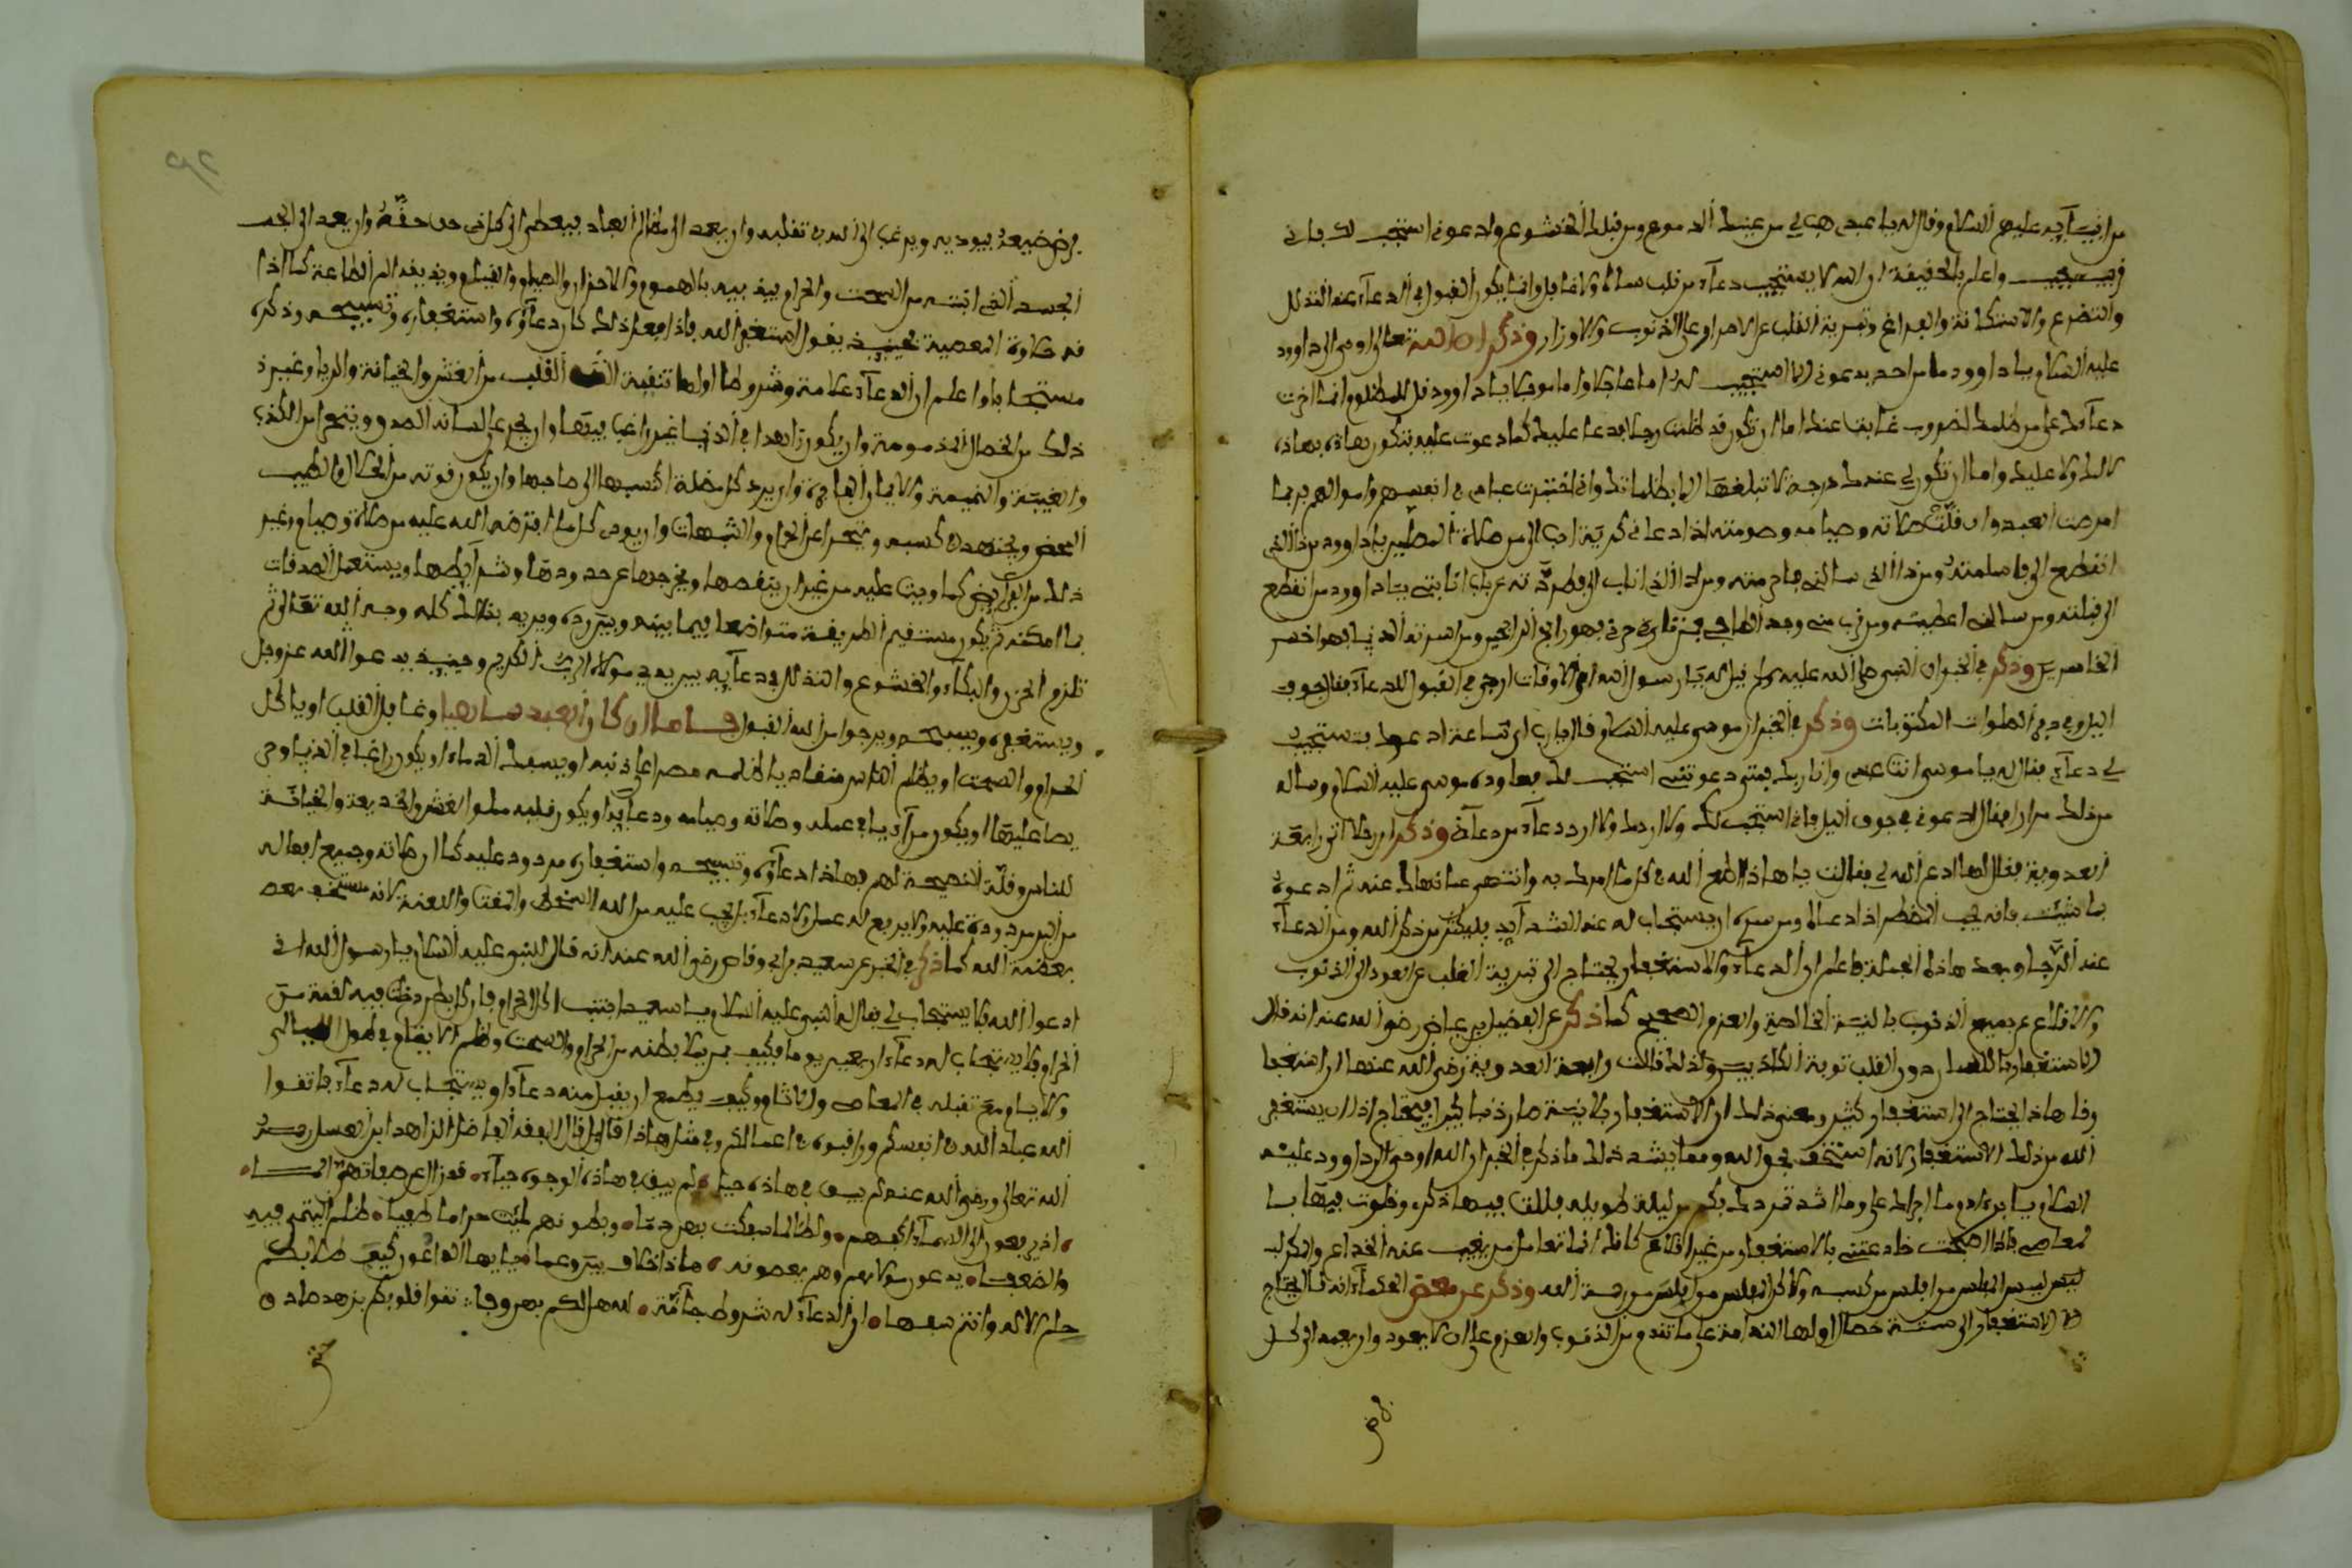 من انبيآيه عليهم السلام وقال له يا عبدي هب لي من عينيك الدموع ومن قلبك الخشوع وادعوني استجب لك فاني
قريب مجيب واعلم بالحقيقة ان الله لا يستجيب دعآء من قلب ساه ولا غافل وانما يكون القبول في الدعآء عند التذلل
والتضرع والاستكانة والفراغ وتبرية القلب عن الاصرار على الذنوب والاوزار وذكر ان الله تعالى اوحى الى داوود
عليه السلام يا داوود ما من احد يدعوني الا استجيب له اما عاجلا واما موجلا يا داوود قل للمظلوم انما اخرت
دعآءك على من ظلمك لضروب غابت عنك اما ان تكون قد ظلمت رجلا فدعا عليك كما دعوت عليه فتكون هاذه بهاذه
لا لك ولا عليك واما ان تكون لي عندك درجة لا تبلغها الا بظلمه لك واني اختبرت عبادي في انفسهم واموالهم فربما
امرضت العبد وان قلّت صلاته وصيامه وصومته اذا دعاني كربة احب الي من صلاة المصلين يا داوود من ذا الذي
انقطع الي فاسلمته ومن ذا الذي سالني فحرمته ومن ذا الذي اناب الي فطردته عن باب انابتي يا داوود من انقطع
الي قبلته ومن سالني اعطيته ومن قرب مني
الخاسرين وذكر في الخبر ان النبي صلى الله عليه وسلم قيل له يا رسول الله اي الاوقات ارجى في القبول للدعآء فقال جوف
اليل وفي دبر الصلوات المكتوبات وذكر في الخبر ان موسى عليه السلام قال يا رب اي ساعة ادعوك فتستجيب
لي دعآي فقال له يا موسى انت عبدي وانا ربك فمتى دعوتني استجب لك فعاوده موسى عليه السلام وساله
من ذلك مرارا فقال ادعوني في جوف اليل فاني استجيب لك ولا اردك ولا ارد دعآء من دعآني وذكر ان رجلا اتى رابعة
العدوية فقال لها ادعي الله لي فقالت يا هاذا اطع الله في كل ما امرك به وانتهي عما نهاك عنه ثم ادعوه
بما شيت فانه يجيب المضطر اذا دعاه ومن سره ان يستجاب له عند الشدآيد فليكثر من ذكر الله ومن الدعآء
عند الرخآ وبعد هاذه الجملة فاعلم ان الدعآء والاستغفار يحتاج الى تبرية القلب عن العود الى الذنوب
والاقلاع عن جميع الذنوب بالنية الخالصة والعزم الصحيح كما ذكر عن الفضيل بن عياض رضي الله عنه انه قال
الاستغفار باللسان دون القلب توبة الكاذبين وكذلك قالت رابعة العدوية رضي الله عنها استغفا
رنا هاذا يحتاج الى استغفار كثير ومعنى ذلك ان الاستغفار بلا نية صار ذنبا كبيرا فيحتاج اذا ان يستغفر
الله من ذلك الاستغفار لانه استخف بحق الله ومما يشد ذلك ما ذكر في الخبر ان الله اوحى الى داوود عليه
السلام يا بن ءادم ما اجراك علي وما اشد تمردك بكم من ليلة طويلة
لمعاصي فاذا اصبحت خادعتني بالاستغفار من غير اقلاع كانك انما تعامل من يغيب عنه الخداع والمكر
ليس المفلس من افلس من كسبه ولاكن المفلس من افلس من رحمة الله وذكر عن بعض الحكمآء انه قال يحتاج
الاستغفار الى ستة خصال اولها الندامة على ما تقدم من الذنوب والعزم على ان لا يعود وان يعمد الى كل
فرض ضيعه فيوديه ويرغب الى الله في تقلبه وان يعمد الى مظالم العباد فيعطي الى كل ذي حق حقه وان يعمد الى
الجسد الذي انبته من السحت والحرام فيذيبه بالهموم والاحزان والصيام والقيام ويذيقه الم الطاعة كما اذا
قه حلاوة المعصية فحينيذ يقول استغفر الله فاذا فعل ذلك كان دعآؤه واستغفاره وتسبيحه وذكره
مستجابا واعلم ان للدعآء علامة وشروطا اولها تنقية القلب من الغش والخيانة والريا وغير ذ
ذلك من الخصال المذمومة وان يكون زاهدا في الدنيا غير راغب فيها وان يجري على لسانه الصدق ويتحرا من الكذب
والغيبة والنميمة والايمان الفاجرة وان يرد كل مظلمة اكتسبها الى صاحبها وان يكون قوته من الحلال الطيب
المحض ويجتهد في كسبه ويتحرا عن الحرام والشبهات وان يودي كل ما افترضه الله عليه من صلاة وصيام وغير
ذلك من الفرآيض كما وجبت عليه من غير ان ينقصها ويخرجها عن حدودها وشرآيطها ويستعمل الصدقات
بما امكنه ثم يكون مستقيم الطريقة متواضعا فيما بينه وبين ربه ويريد بذلك كله وجه الله تعالى ثم
تلزم الحزن والبكآء والخشوع والتذلل في دعآيه بين يدي مولاه الرب الكريم وحينيذ يدعوا الله عز وجل
ويستغفره ويسبحه ويرجوا من الله القبول فاما ان كان العبد ساهيا وغافل القلب او ياكل
الحرام والسحت او يظلم الناس متقلد بالمظالم مصرا على ذنبه او يسفك الدمآء او يكون راغبا في الدنيا وحر
يصا عليها او يكون مرآءيا في عمله وصلاته وصيامه ودعآيه او يكون قلبه مملوا بالغش والخديعة والخيانة
للناس وقلة النصيحة لهم فهاذا دعآؤه وتسبيحه واستغفاره مردود عليه كما ان صلاته وجميع افعاله
من البر مردودة عليه ولا يرفع له عمل ولا دعآء بل يجب عليه من الله السخط والمقت واللعنة لانه مستخف
بعظمة الله كما ذكر في الخبر عن سعيد بن ابي وقاص رضي الله عنه انه قال للنبي عليه السلام يا رسول الله اني
ادعوا الله فلا يستجاب لي فقال له النبي عليه السلام يا سعيد اجتنب اكل الحرام فان كل بطن دخلت فيه لقمة من
الحرام فلا يستجاب له دعآء اربعين يوما فكيف بمن يملا بطنه من الحرام والسحت وظلم الايتام في طول الليالي
والايام مع تقلبه في المعاصي والاثام وكيف يطمع ان يقبل منه دعآء او يستجاب له دعآء فاتقوا
الله عباد الله في انفسكم وراقبوه في اعمالكم وفي مثل هاذا قال قال الفقيه الفاضل الزاهد ابن العسل رحمه
الله تعالى ورضي الله عنه لم يبق في هاذه لم يبق في هاذه الوجوه حيآء
يدعون الى السمآء اكفهم ولطالما سفكت بهن دما وبطونهم مليت حراما
يدعون مولاهم وهم يعصونه ماذا خلاف بين وعما يا ايها الداعون كيف طلابكم
حلم الاله وانتم سفها ان الدعآء له شروط جآءت نقوا قلوبكم بزهد صادق